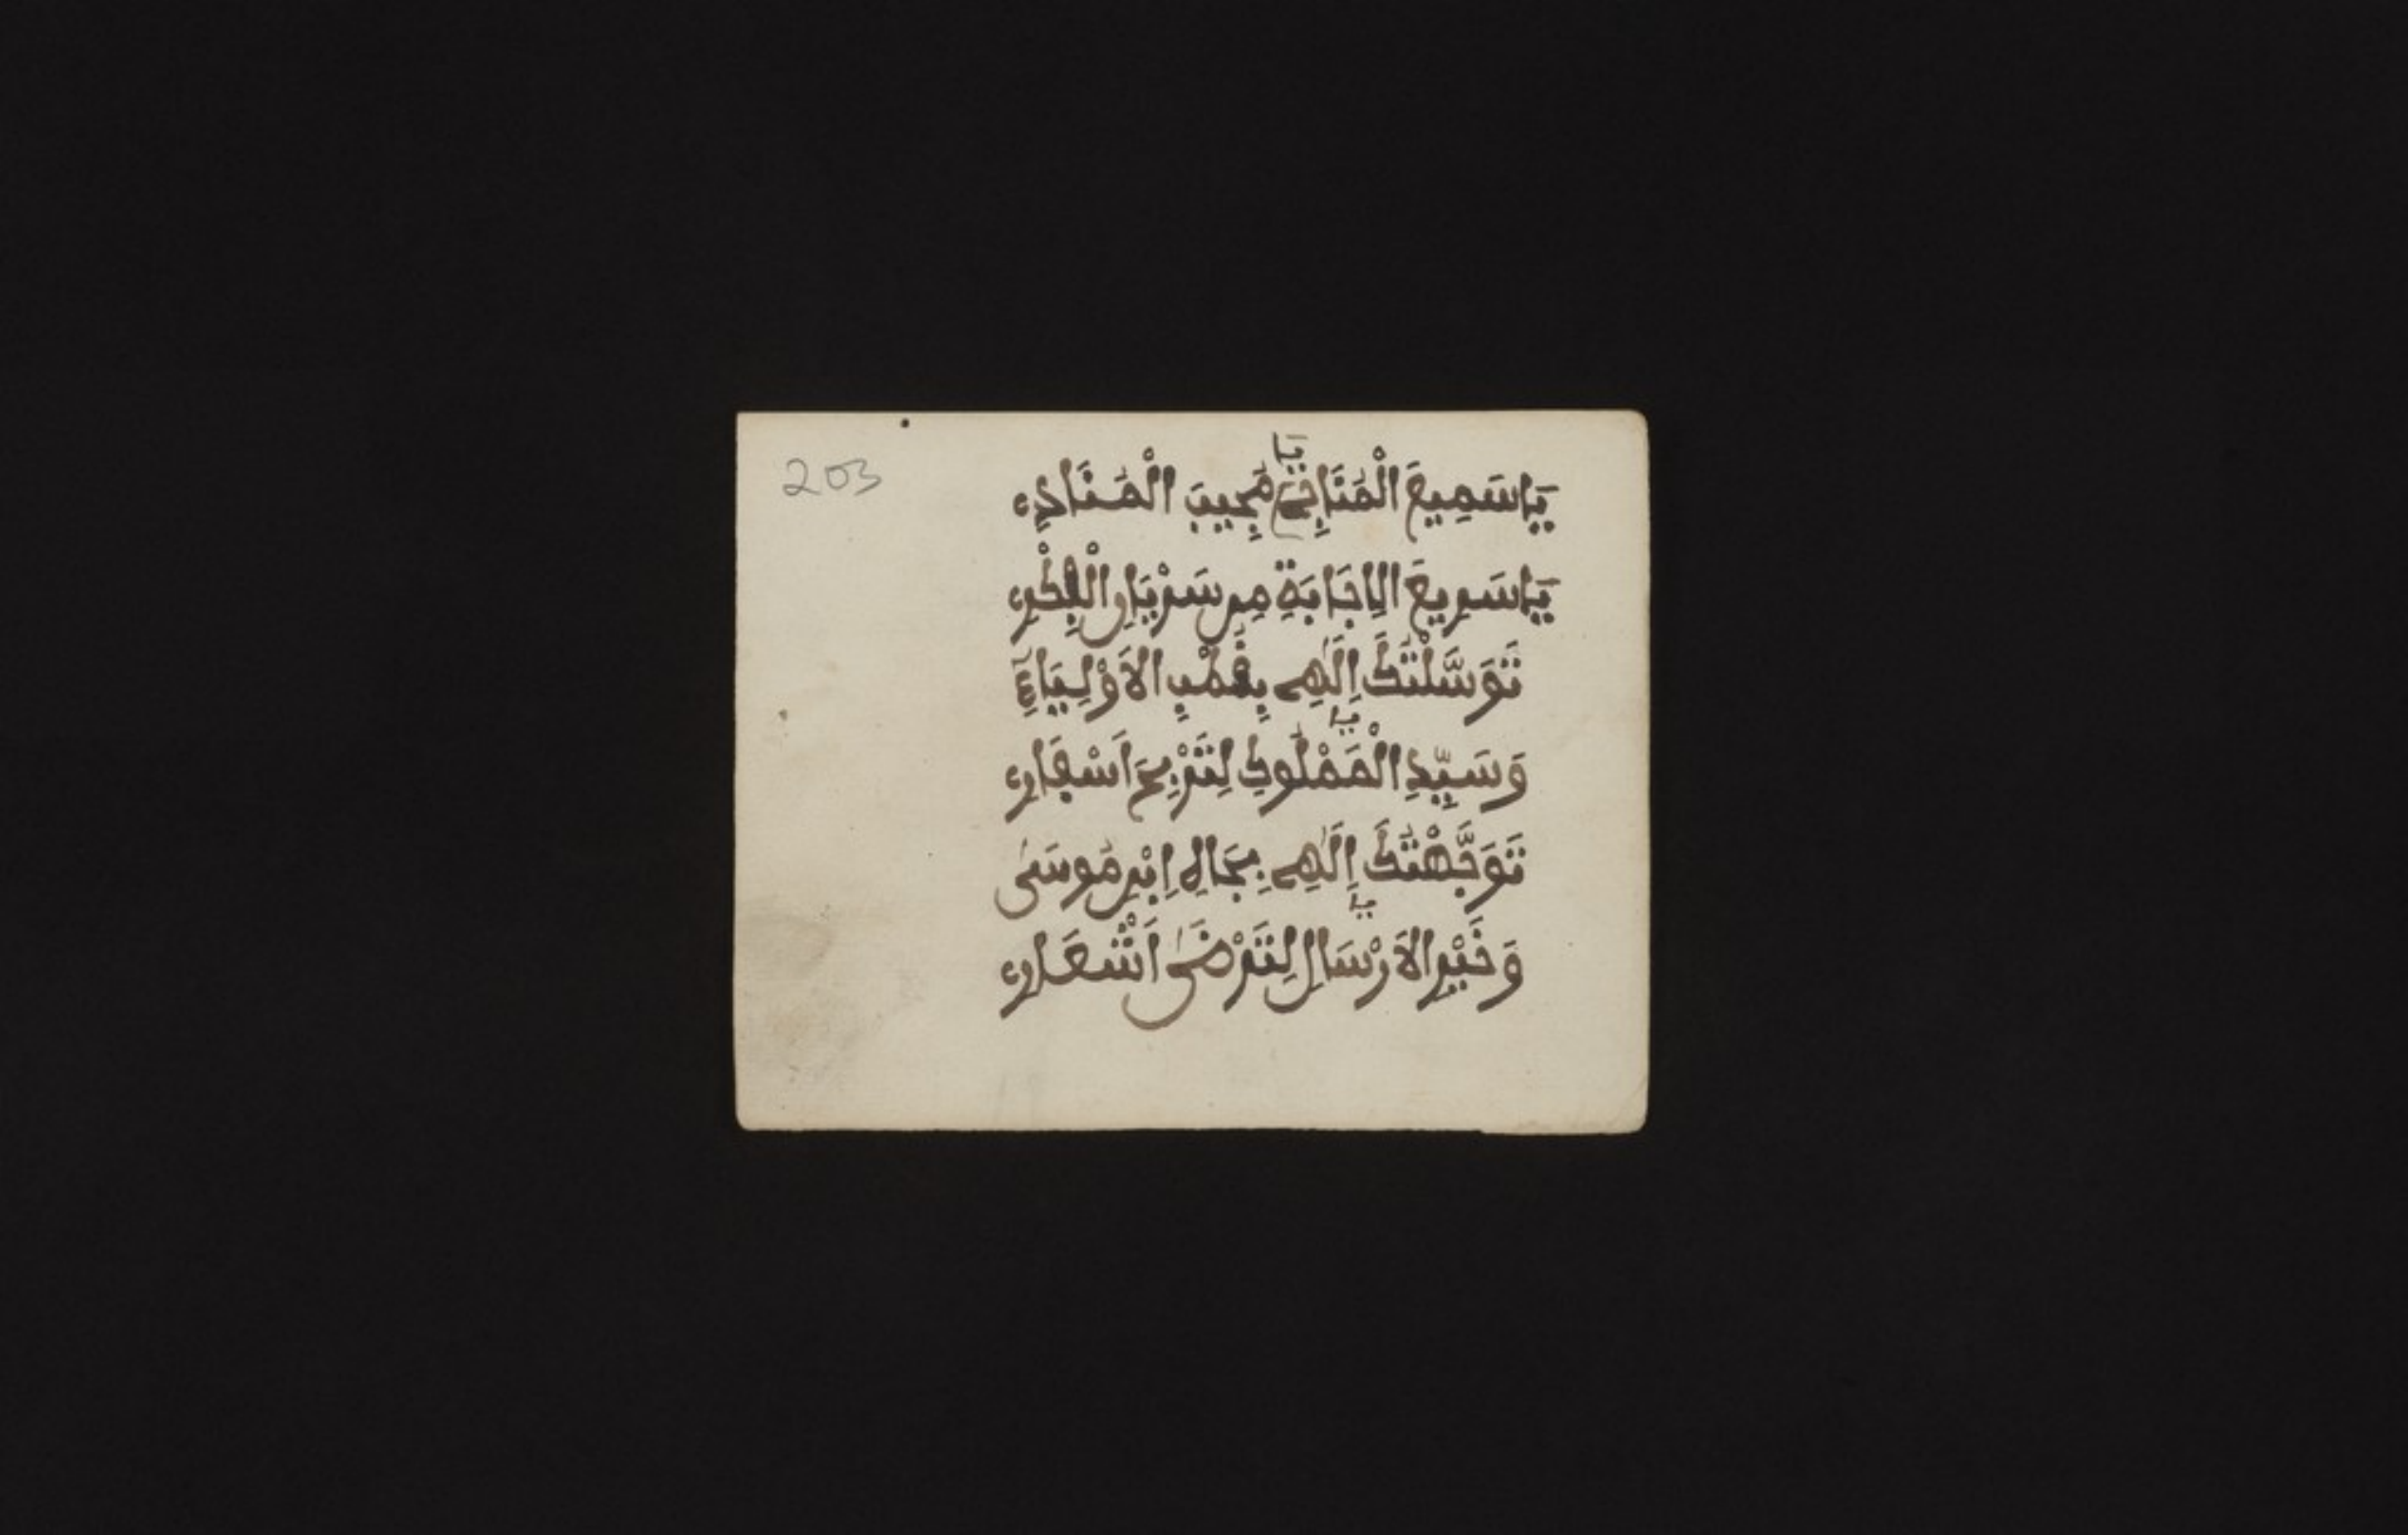 203
يَا سَمِيعَ الْمُنَاجِ يَا مُجِيبَ الْمُنَادِے
يَا سَرِيعَ الِاجَابَةِ مِن سَرْيَانِ
تَوَسَّلْتُكَ اِلَهِے بِقُطْبِ الاَوْلِيَاءِ
وَسَيِّدِ الْمَمْلُوكِ يَا لِتَرْبِحَ اَسْفَارِے
تَوَجَّهْتُكَ اِلَهِے بِجَاهِ اِبْنِ مُوسَىٰ
وَخَيْرِ الاَرْسَالِ يَا لِتَرْضَىٰ اَشْعَارِے